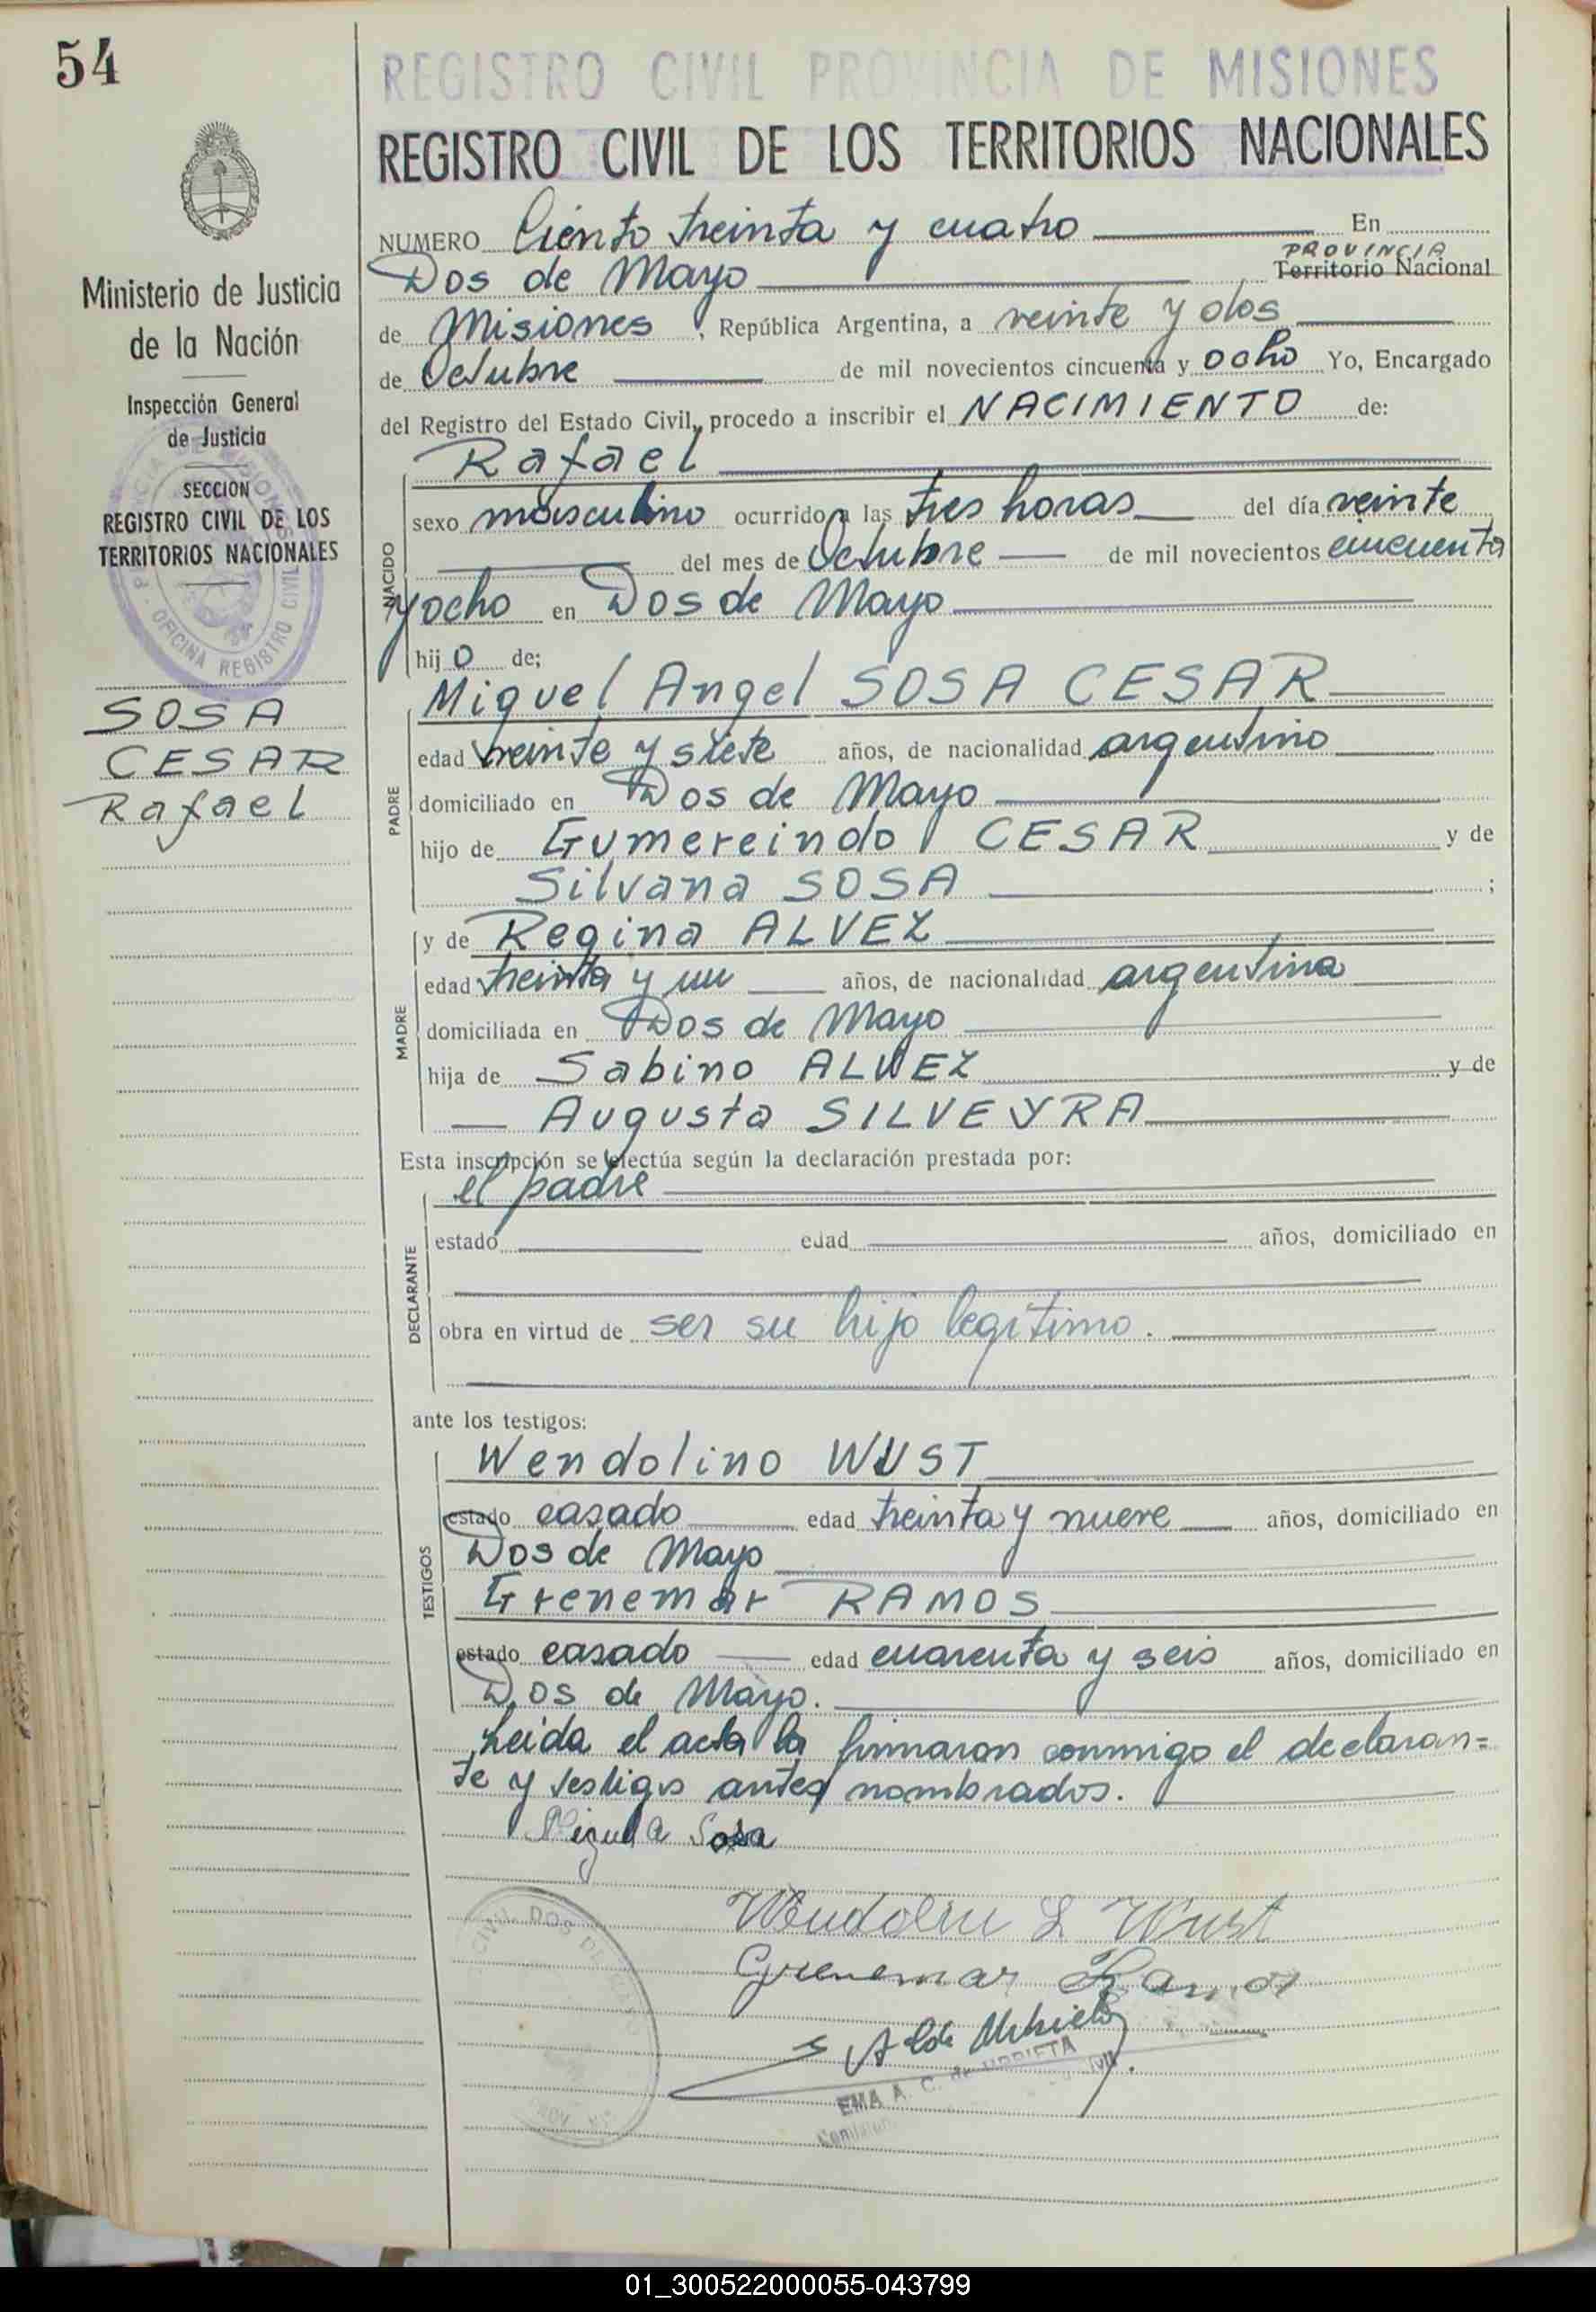 54
REGISTRO CIVIL PROVINCIA DE MISIONES
REGISTRO CIVIL DE LOS TERRITORIOS NACIONALES
NUMERO Ciento treinta y cuatro En
PROVINCIA
Dos de Mayo Territorio Nacional
de Misiones, República Argentina, a veinte y dos
de Octubre de mil novecientos cincuenta y ocho Yo, Encargado
del Registro del Estado Civil, procedo a inscribir el NACIMIENTO de:
Rafael
NACIDO
sexo masculino ocurrido a las tres horas del día veinte
del mes de Octubre de mil novecientos cincuenta
y ocho en Dos de Mayo
hijo de;
Miguel Angel SOSA CESAR
PADRE
edad treinte y siete años, de nacionalidad argentino
domiciliado en Dos de Mayo
hijo de Gumereindo CESAR y de
Silvana SOSA ;
MADRE
y de Regina ALVEZ
edad treinta y un años, de nacionalidad argentina
domiciliada en Dos de Mayo
hija de Sabino ALVEZ y de
Augusta SILVEYRA
Esta inscripción se efectúa según la declaración prestada por:
DECLARANTE
el padre
estado edad años, domiciliado en
obra en virtud de ser su hijo legítimo.
ante los testigos:
TESTIGOS
Wendolino WUST
estado casado edad treinta y nueve años, domiciliado en
Dos de Mayo
Grenemar RAMOS
estado casado edad cuarenta y seis años, domiciliado en
Dos de Mayo.
Leida el acta la firmaron conmigo el declaran=
te y testigos antes nombrados.
Miguel A Sosa
Wendolin L Wust
Grenemar Ramos
A de Urrieta
EMA A. C. de URRIETA
CIVIL DOS DE MAYO
Ministerio de Justicia
de la Nación
Inspección General
de Justicia
SECCION
REGISTRO CIVIL DE LOS
TERRITORIOS NACIONALES
OFICINA REGISTRO CIVIL
SOSA
CESAR
Rafael
01_300522000055-043799